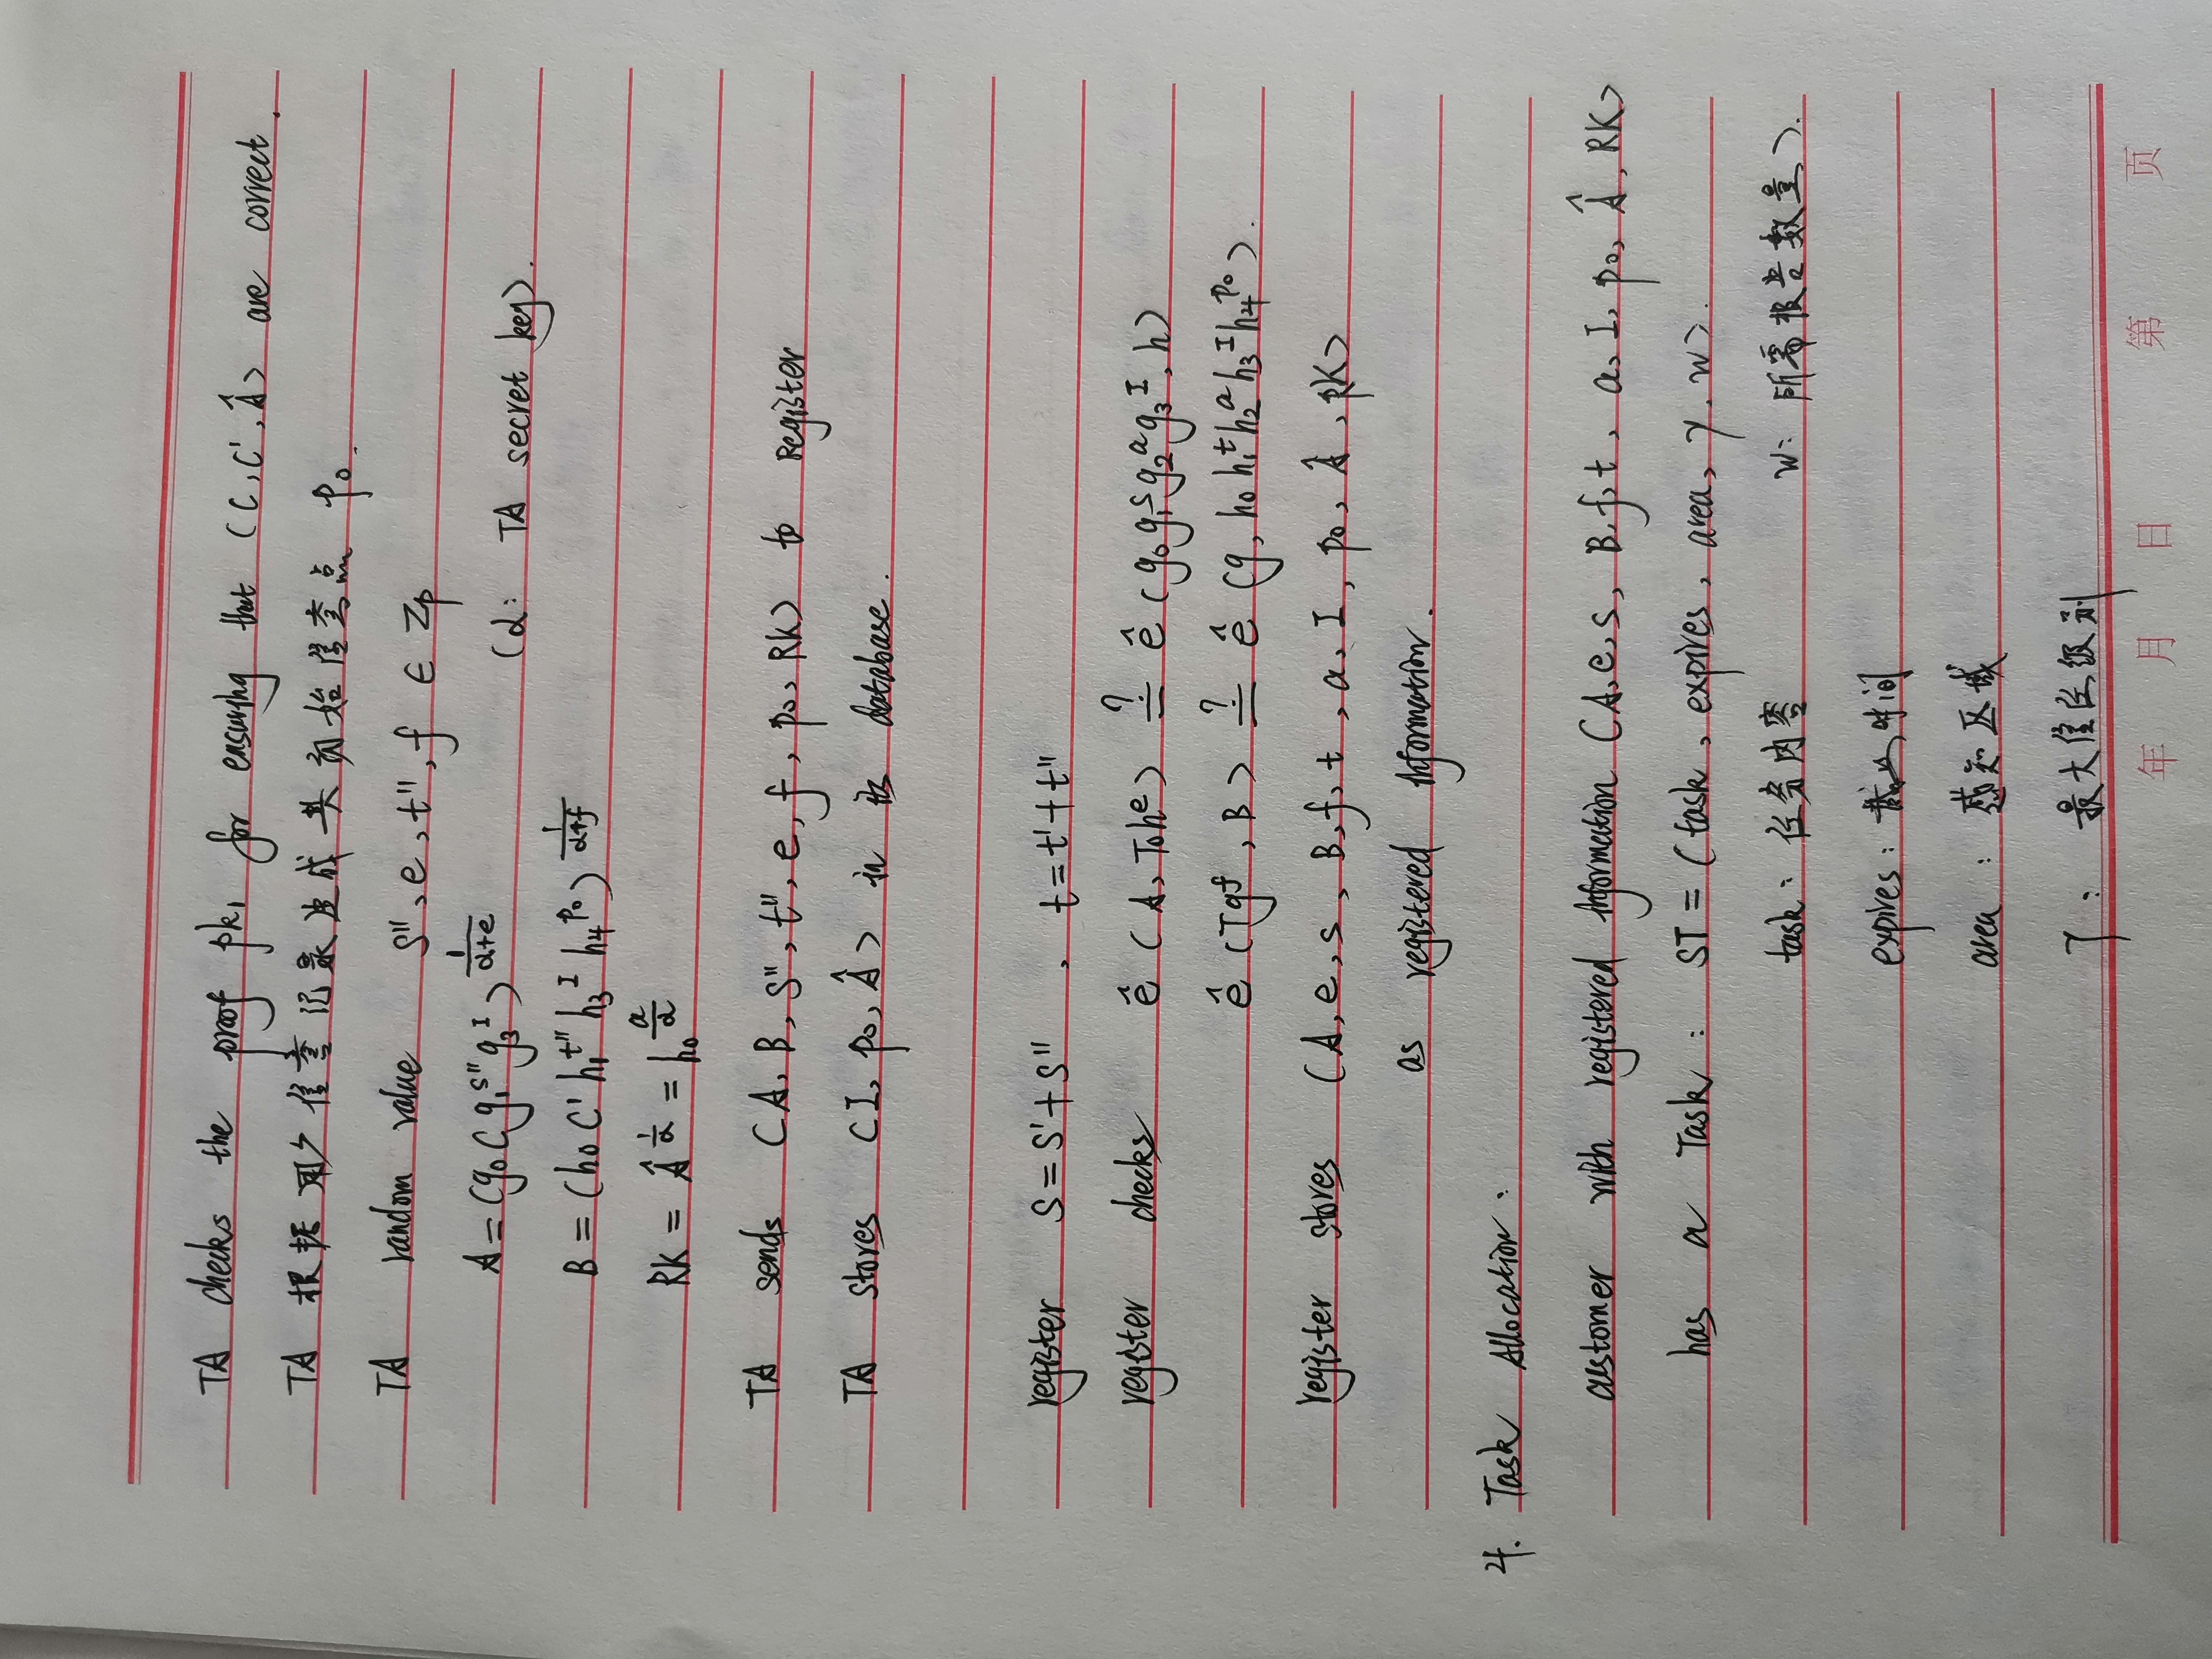 TA checks the proof pk₁ for ensuring that (C, C', Â) are correct.
TA 根据用户信誉记录生成其初始信誉点 p₀.
TA random value s'', e, t'', f ∈ Zp
A = (g₀ C g₁^s'' g₃^I)^(1/(α+e)) (α: TA secret key).
B = (h₀ C' h₁^t'' h₃^I h₄^p₀)^(1/(α+f))
RK = Â^(1/α) = h₀^(a/α)
TA sends (A, B, s'', t'', e, f, p₀, RK) to Register
TA stores (I, p₀, Â) in its database.
register s = s' + s'' , t = t' + t''
register checks ê (A, T₀h^e) ≟ ê (g₀g₁^s g₂^a g₃^I, h)
ê (Tg^f, B) ≟ ê (g, h₀h₁^t h₂^a h₃^I h₄^p₀).
register stores (A, e, s, B, f, t, a, I, p₀, Â, RK)
as registered information.
4. Task Allocation:
customer with registered information (A, e, s, B, f, t, a, I, p₀, Â, RK)
has a Task: ST = (task, expires, area, γ, w).
task: 任务内容 w: 所需报告数量).
expires: 截止时间
area: 感知区域
γ: 最大信任级别
年 月 日 第 页